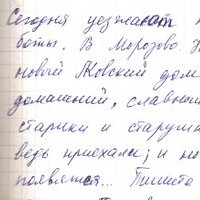 Сегодня уезжают н
боты. В Морозово н
новый Яковский дом
домашний, славный
старики и старушк
ведь приехали; и но
появлется... Пишите